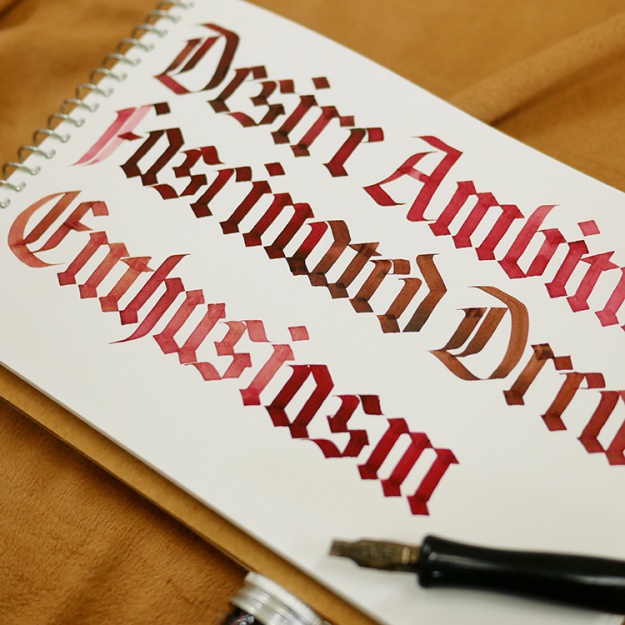 Desire Ambit
Fascinated Drea
Enthusiasm